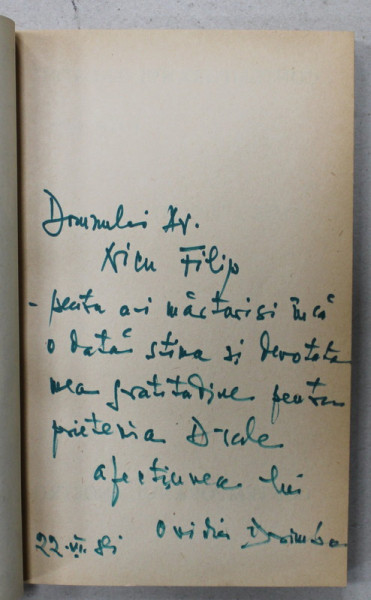 Domnului Av.
Nicu Filip
- pentru a-i mărturisi încă
o dată stima și devotata
mea gratitudine pentru
prietenia D-sale
afecțiunea lui
Ovidiu Drimba
22.VI.81